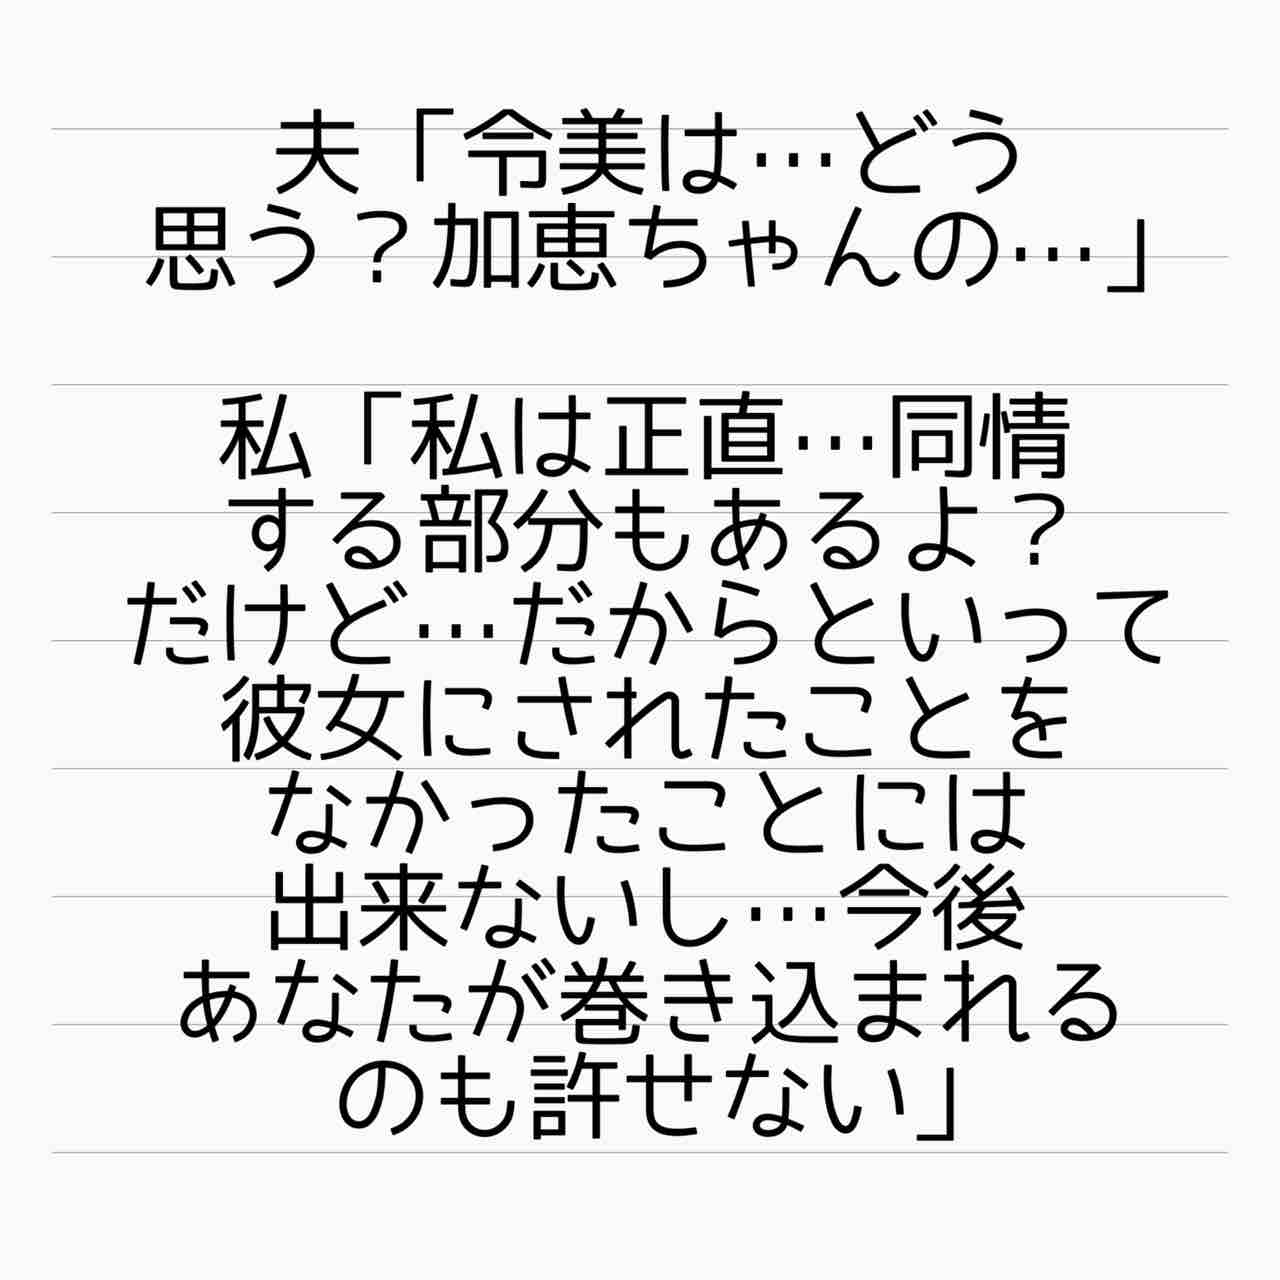 夫「令美は…どう
思う？加恵ちゃんの…」
私「私は正直…同情
する部分もあるよ？
だけど…だからといって
彼女にされたことを
なかったことには
出来ないし…今後
あなたが巻き込まれる
のも許せない」